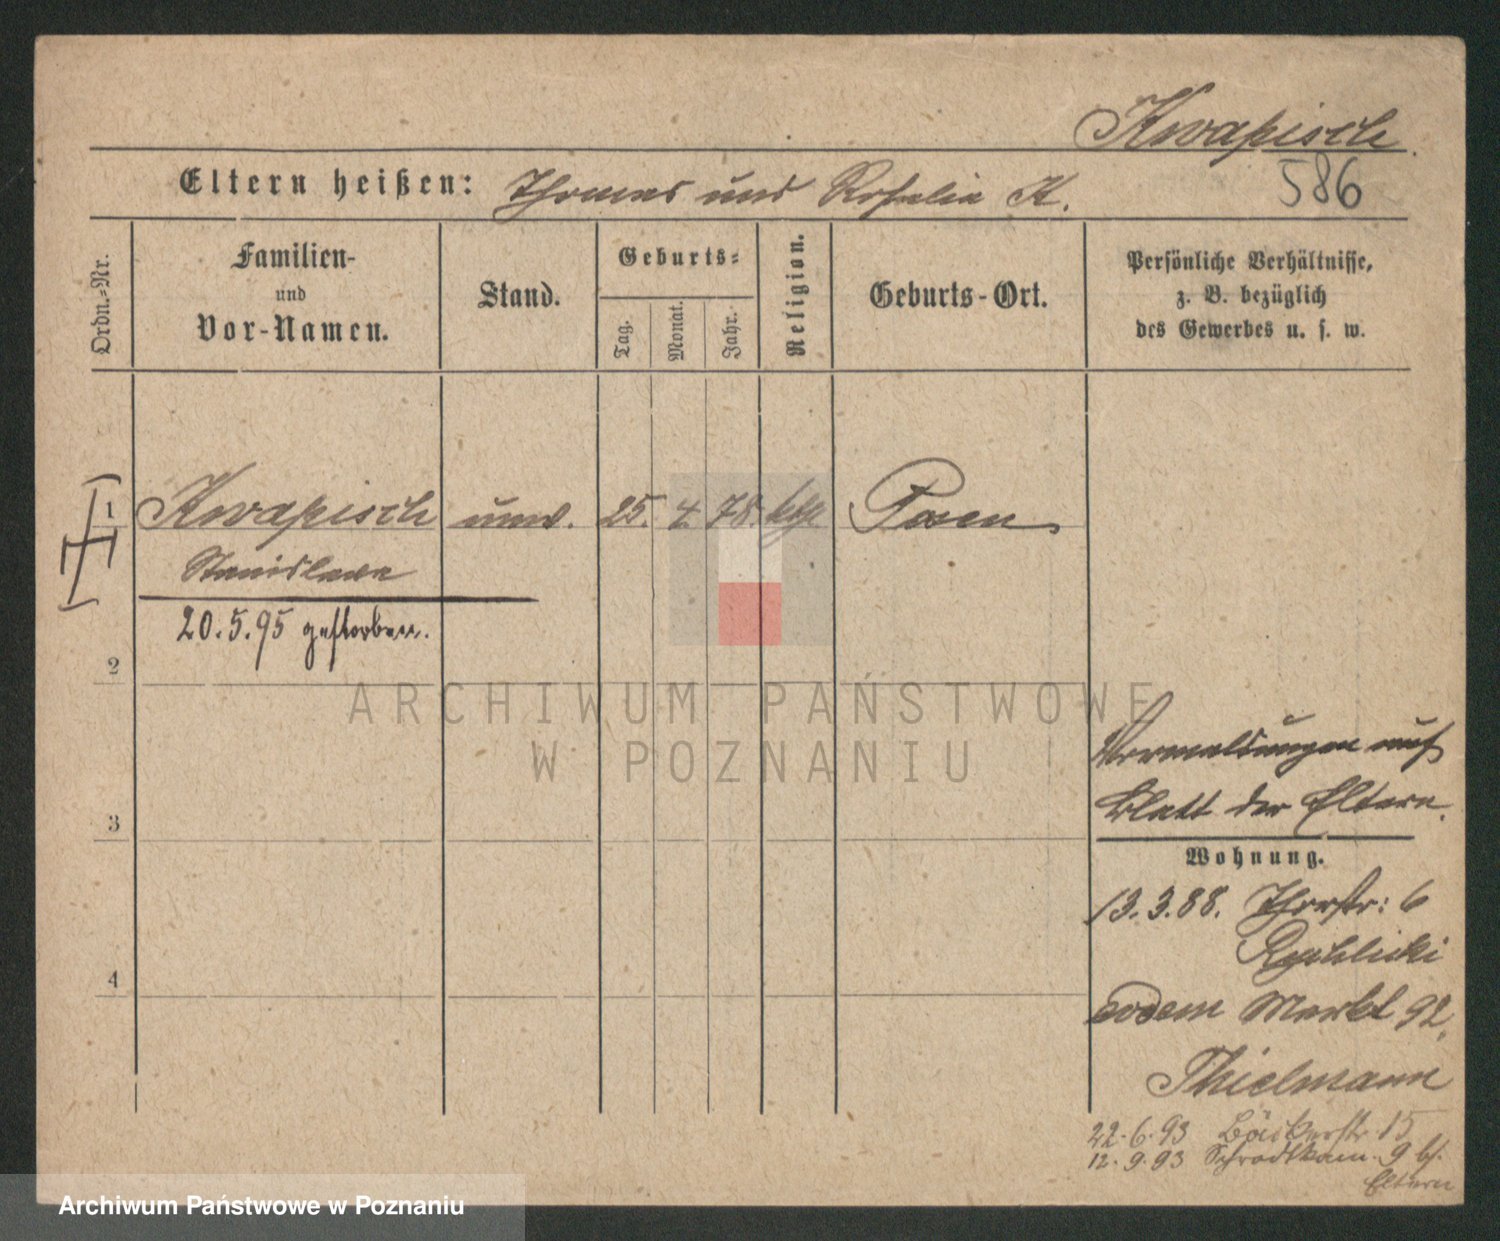 Kwapisch
586
Eltern heißen: Thomas und Rosalia K.
Ordn.-Nr.
Familien-
und
Vor-Namen.
Stand.
Geburts-
Tag.
Monat.
Jahr.
Religion.
Geburts-Ort.
Persönliche Verhältnisse,
z. B. bezüglich
des Gewerbes u. s. w.
1 Kwapisch unv. 25. 4. 78. ktl Posen
Stanislawa
20.5.95 gestorben.
2
ARCHIWUM PAŃSTWOWE
W POZNANIU
Vermeldungen auf
Blatt der Eltern.
3
Wohnung.
13.3.88. Thorstr: 6
Rychlicki
4
eodem Markt 92,
Thielmann
22.6.93 Bäckerstr. 15
12.9.93 9 b/.
Eltern
Archiwum Państwowe w Poznaniu